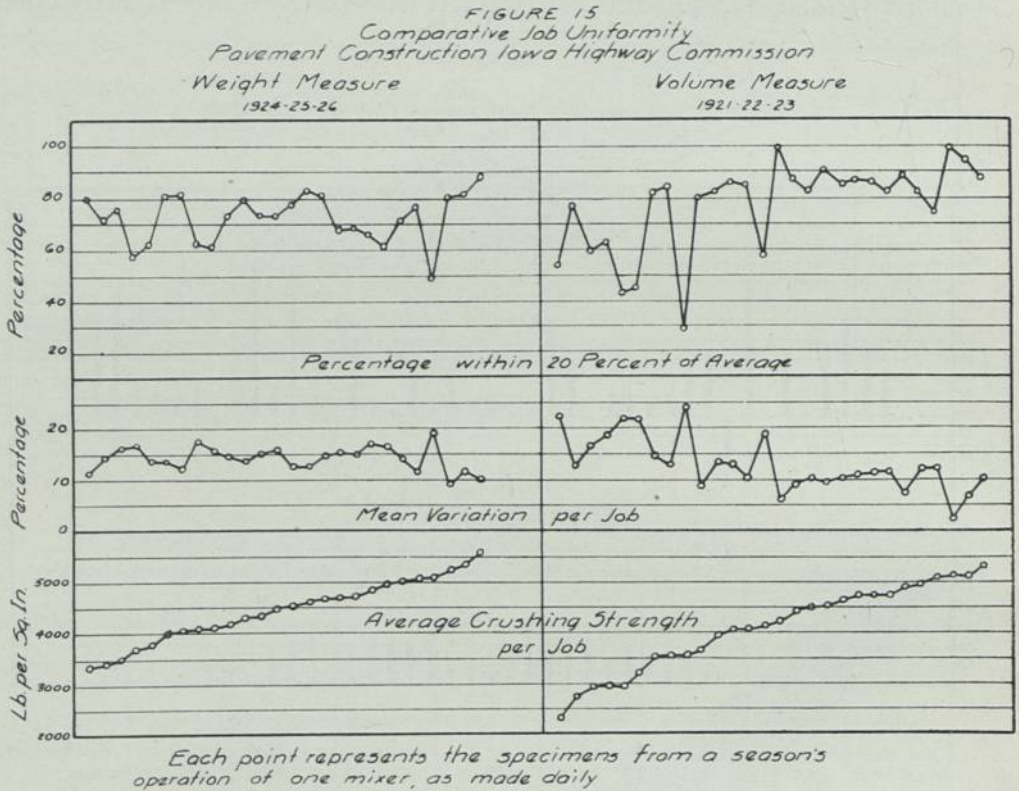 FIGURE 15
Comparative Job Uniformity
Pavement Construction Iowa Highway Commission
Weight Measure
1924-25-26
Volume Measure
1921-22-23
Percentage
100
80
60
40
20
Percentage within 20 Percent of Average
Percentage
20
10
0
Mean Variation per Job
Lb. per Sq. In.
5000
4000
3000
2000
Average Crushing Strength
per Job
Each point represents the specimens from a season's
operation of one mixer, as made daily